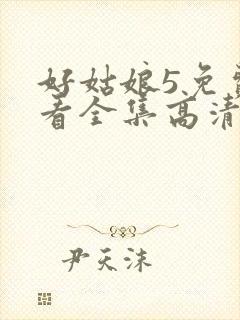 好姑娘5免费
看全集高清
尹天沫